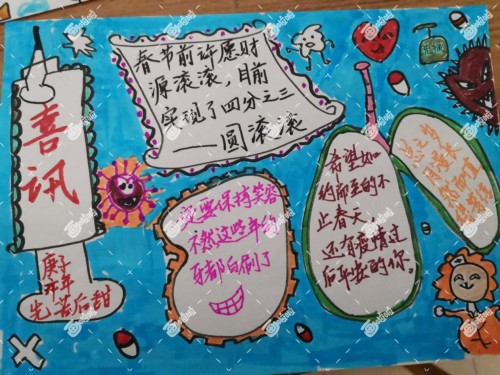 喜
讯
庚子
开年
先苦后甜
春节前许愿财
源滚滚，目前
实现了四分之三
——圆滚滚
要保持笑容
不然这些年的
牙都白刷了
希望如
约而至的不
止春天，
还有疫情过
后平安的你。